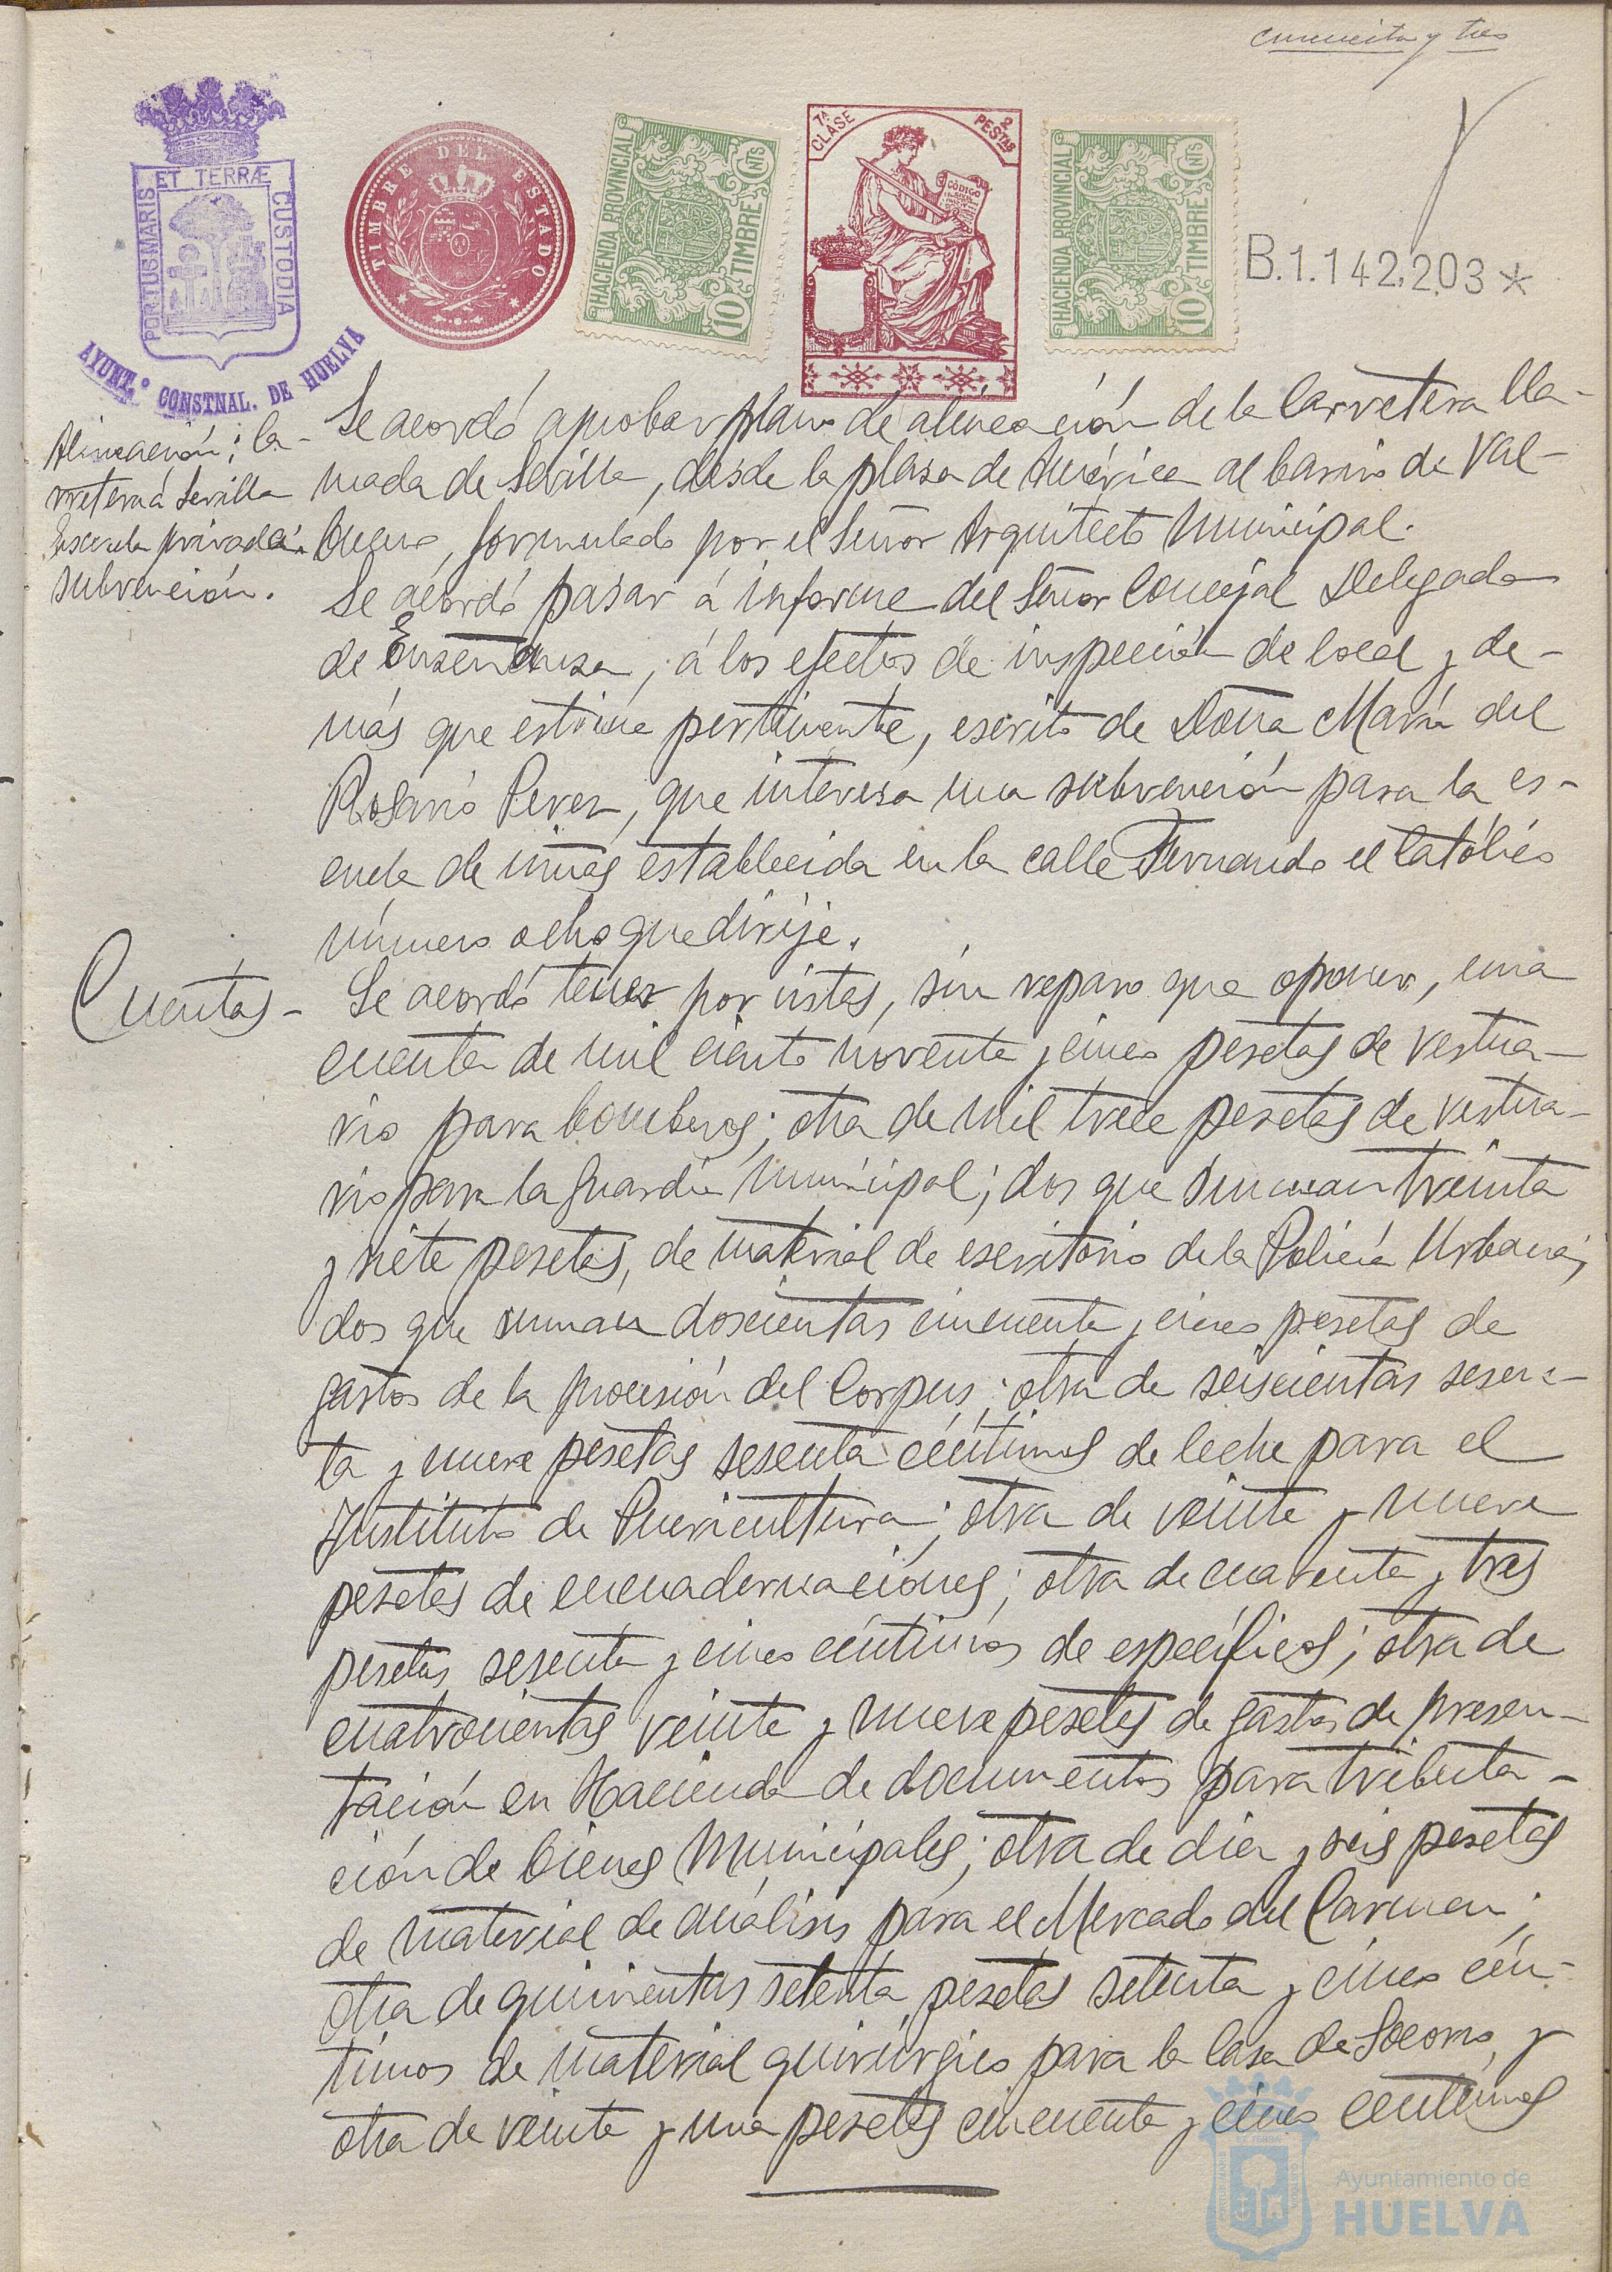 cincuenta y tres
ET TERRÆ
PORTUS MARIS
CUSTODIA
AYUNT.º CONSTNAL. DE HUELVA
TIMBRE DEL ESTADO
HACIENDA PROVINCIAL
10 TIMBRE CNTS
7ª CLASE
2 PESTAS
CODIGO
HACIENDA PROVINCIAL
10 TIMBRE CNTS
B.1.142,203*
Alineación; Ca-
rretera á Sevilla
Escuela privada:
subvención.
Se acordó aprobar plano de alineación de la Carretera lla-
mada de Sevilla, desde la plaza de América al barrio de Val-
bueno, formulado por el Señor Arquitecto Municipal.
Se acordó pasar á informe del Señor Concejal Delegado
de Enseñanza, á los efectos de inspección de local y de-
más que estime pertinente, escrito de Doña María del
Rosario Perez, que interesa una subvención para la es-
cuela de niñas establecida en la calle Fernando el Católico
número ocho que dirije.
Cuentas-
Se acordó tener por vistas, sin reparo que oponer, una
cuenta de mil ciento noventa y cinco pesetas de vestua-
rio para bomberos; otra de mil trece pesetas de vestua-
rio para la Guardia Municipal; dos que suman treinta
y siete pesetas, de material de escritorio de la Policía Urbana;
dos que suman doscientas cincuenta y cinco pesetas de
gastos de la procesión del Corpus; otra de seiscientas sesen-
ta y nueve pesetas sesenta céntimos de leche para el
Instituto de Puericultura; otra de veinte y nueve
pesetas de encuadernaciones; otra de cuarenta y tres
pesetas sesenta y cinco céntimos de específicos; otra de
cuatrocientas veinte y nueve pesetas de gastos de presen-
tación en Hacienda de documentos para tributa-
ción de bienes Municipales; otra de diez y seis pesetas
de material de análisis para el Mercado del Carmen;
otra de quinientas setenta pesetas setenta y cinco cén-
timos de material quirúrgico para la Casa de Socorro, y
otra de veinte y una pesetas cincuenta y cinco céntimos
Ayuntamiento de
HUELVA